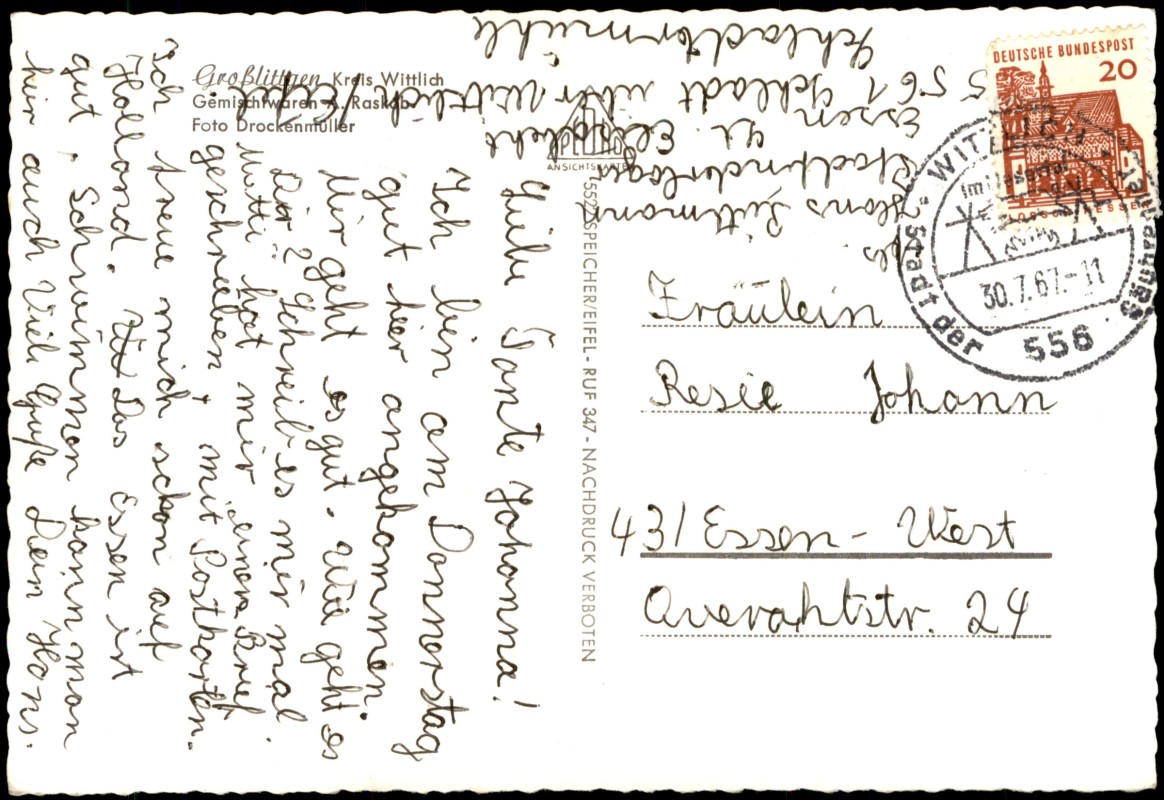 Großlittgen Kreis Wittlich
Gemischtwaren A. Raskob
Foto Drockenmüller
ANSICHTSKARTEN
5522 SPEICHER/EIFEL - RUF 347 - NACHDRUCK VERBOTEN
DEUTSCHE BUNDESPOST
20
WITTLICH
Stadt der Säubrenner
im Liesertal
30.7.67.-11
556
Hans Püttmann
Stadtranderlog
Essen
561 Schladt über Wittlich/Eifel
Schladtermühle
Liebe Tante Johanna!
Ich bin am Donnerstag
gut hier angekommen.
Mir geht es gut. Wie geht es
Dir? Schreib es mir mal.
Mutti hat mir einen Brief
geschrieben, mit Postkarten.
Ich freue mich schon auf
Holland. Das Essen ist
gut. Schwimmen kann man
hier auch Viele Grüße Dein Hans.
Fräulein
Resie Johann
431 Essen-West
Averahtstr. 24